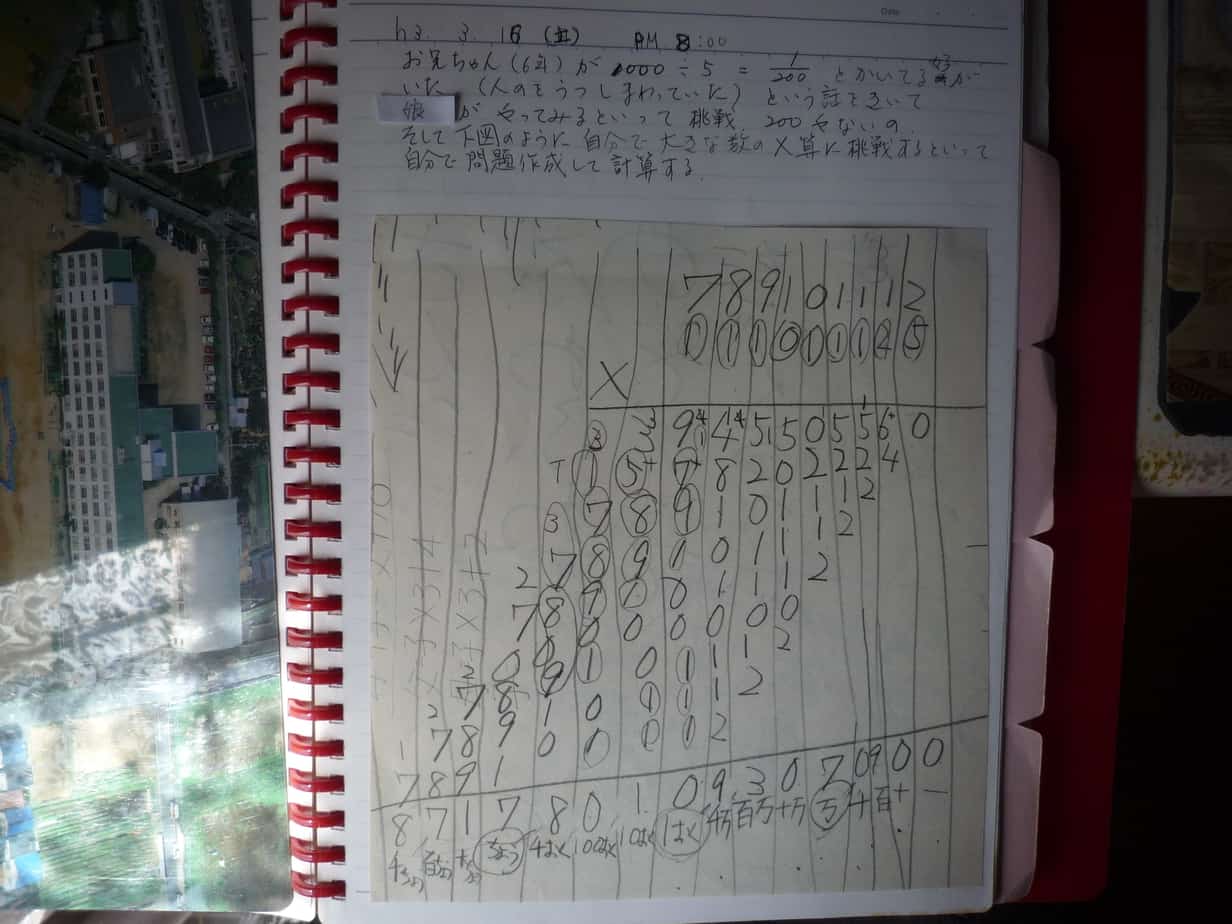 Date
h3. 3. 16 (土) AM 8:00
お兄ちゃん(6年)が 1000÷5 = 1/200 とかいてる
いた (人のをうつしまわっていた) という話をきいて
娘 が やってみるといって 挑戦 200やないの.
そして下図のように自分で大きな数のX算に挑戦するといって
自分で問題作成して計算する.
7 8 9 1 0 1 1 1 2
1 1 1 0 1 1 1 4 5
X
9 4 5 5 0 5 5 6 0
1 5 7 8 2 0 2 2 2 4
7 8 9 1 0 1 1 1 2
7 8 9 1 0 1 1 1 2
7 8 9 1 0 1 1 1 2
0 0 0 0 0 0 0 0 0
7 8 9 1 0 1 1 1 2
7 8 9 1 0 1 1 1 2
7 8 9 1 0 1 1 1 2
8 7 1 7 8 0 1 0 9 3 0 7 0 9 0 0
ちょう 千おく 100おく 10おく 1おく 千万 百万 十万 万 千 百 十 一